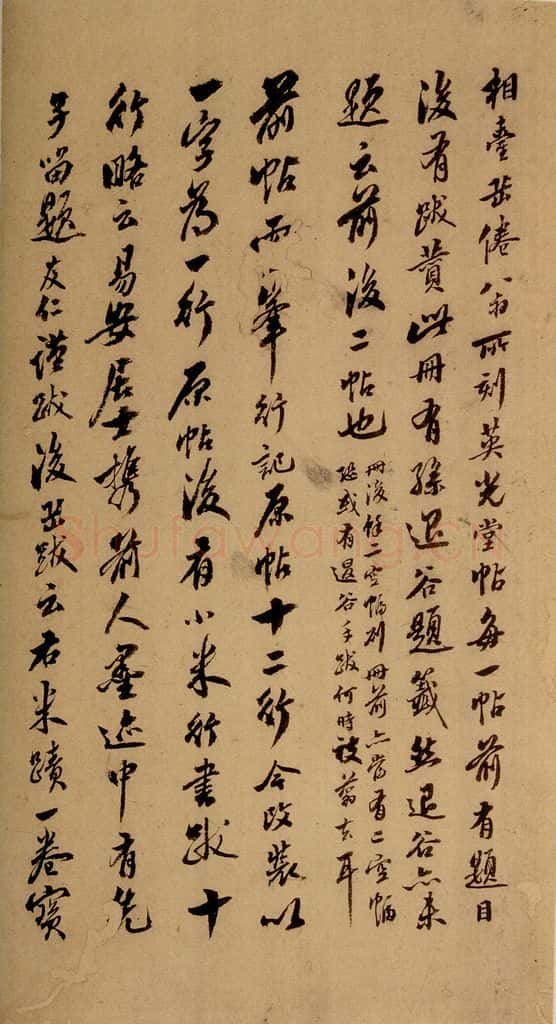 相臺岳倦翁所刻英光堂帖每一帖前有題目
後有跋贊此冊有孫退谷題籤然退谷亦未
題云前後二帖也
冊後餘二空幅則冊前亦當有二空幅
恐或有退谷手跋何時被翦去耳
前帖兩筆行記原帖十二行今改裝以
一字為一行原帖後有小米行書跋十
行略云易安居士携前人墨迹中有先
子留題友仁謹跋後岳跋云右米蹟一卷寶
Shufawang.cn